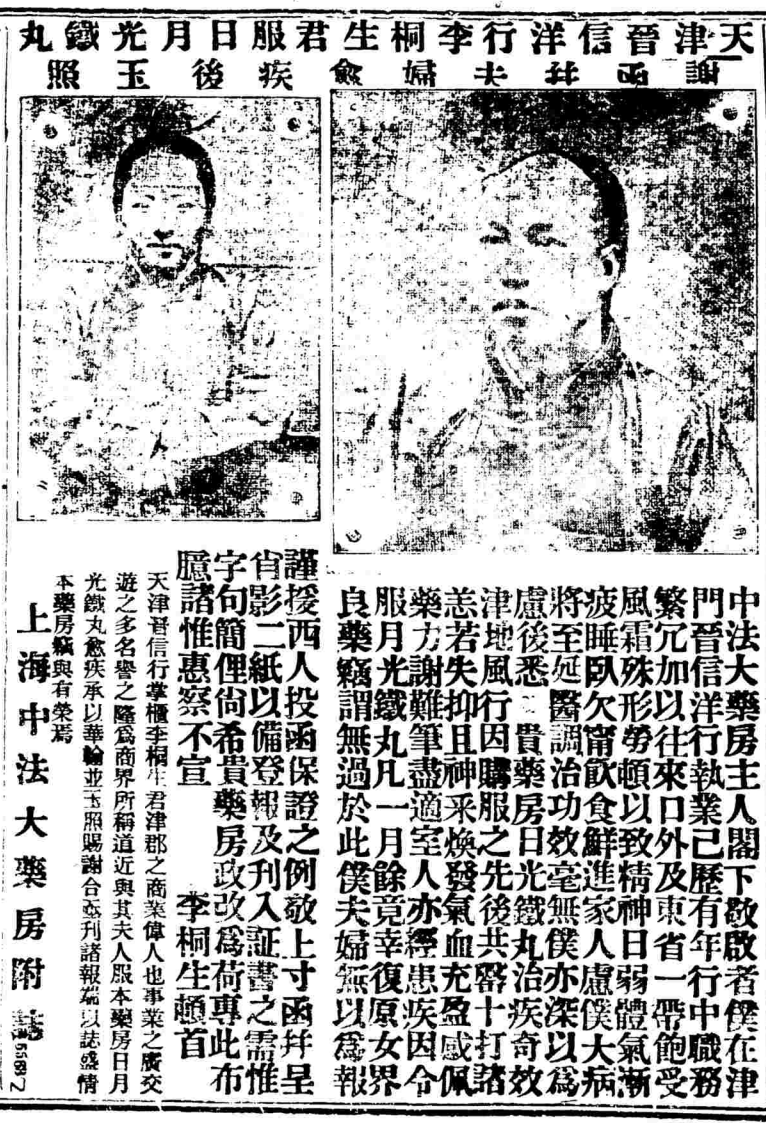 天津晉信洋行李桐生君服日月光鐵丸
謝函并夫婦愈疾後玉照
中法大藥房主人閣下敬啟者僕在津
門晉信洋行執業已歷有年行中職務
繁冗加以往來口外及東省一帶飽受
風霜殊形勞頓以致精神日弱體氣漸
疲睡臥欠甯飲食鮮進家人慮僕大病
將至延醫調治功效毫無僕亦深以爲
慮後悉 貴藥房日光鐵丸治疾奇效
津地風行因購服之先後共罄十打諸
恙若失抑且神采煥發氣血充盈感佩
藥力謝難筆盡適室人亦經患疾因令
服月光鐵丸凡一月餘竟幸復原女界
良藥竊謂無過於此僕夫婦無以爲報
謹援西人投函保證之例敬上寸函并呈
肖影二紙以備登報及刊入証書之需惟
字句簡俚尙希貴藥房政改爲荷專此布
臆諸惟惠察不宣 李桐生頓首
天津晉信行掌櫃李桐生君津郡之商業偉人也事業之廣交
遊之多名譽之隆爲商界所稱道近與其夫人服本藥房日月
光鐵丸愈疾承以華翰並玉照賜謝合亟刊諸報端以誌盛情
本藥房竊與有榮焉
上海中法大藥房附誌